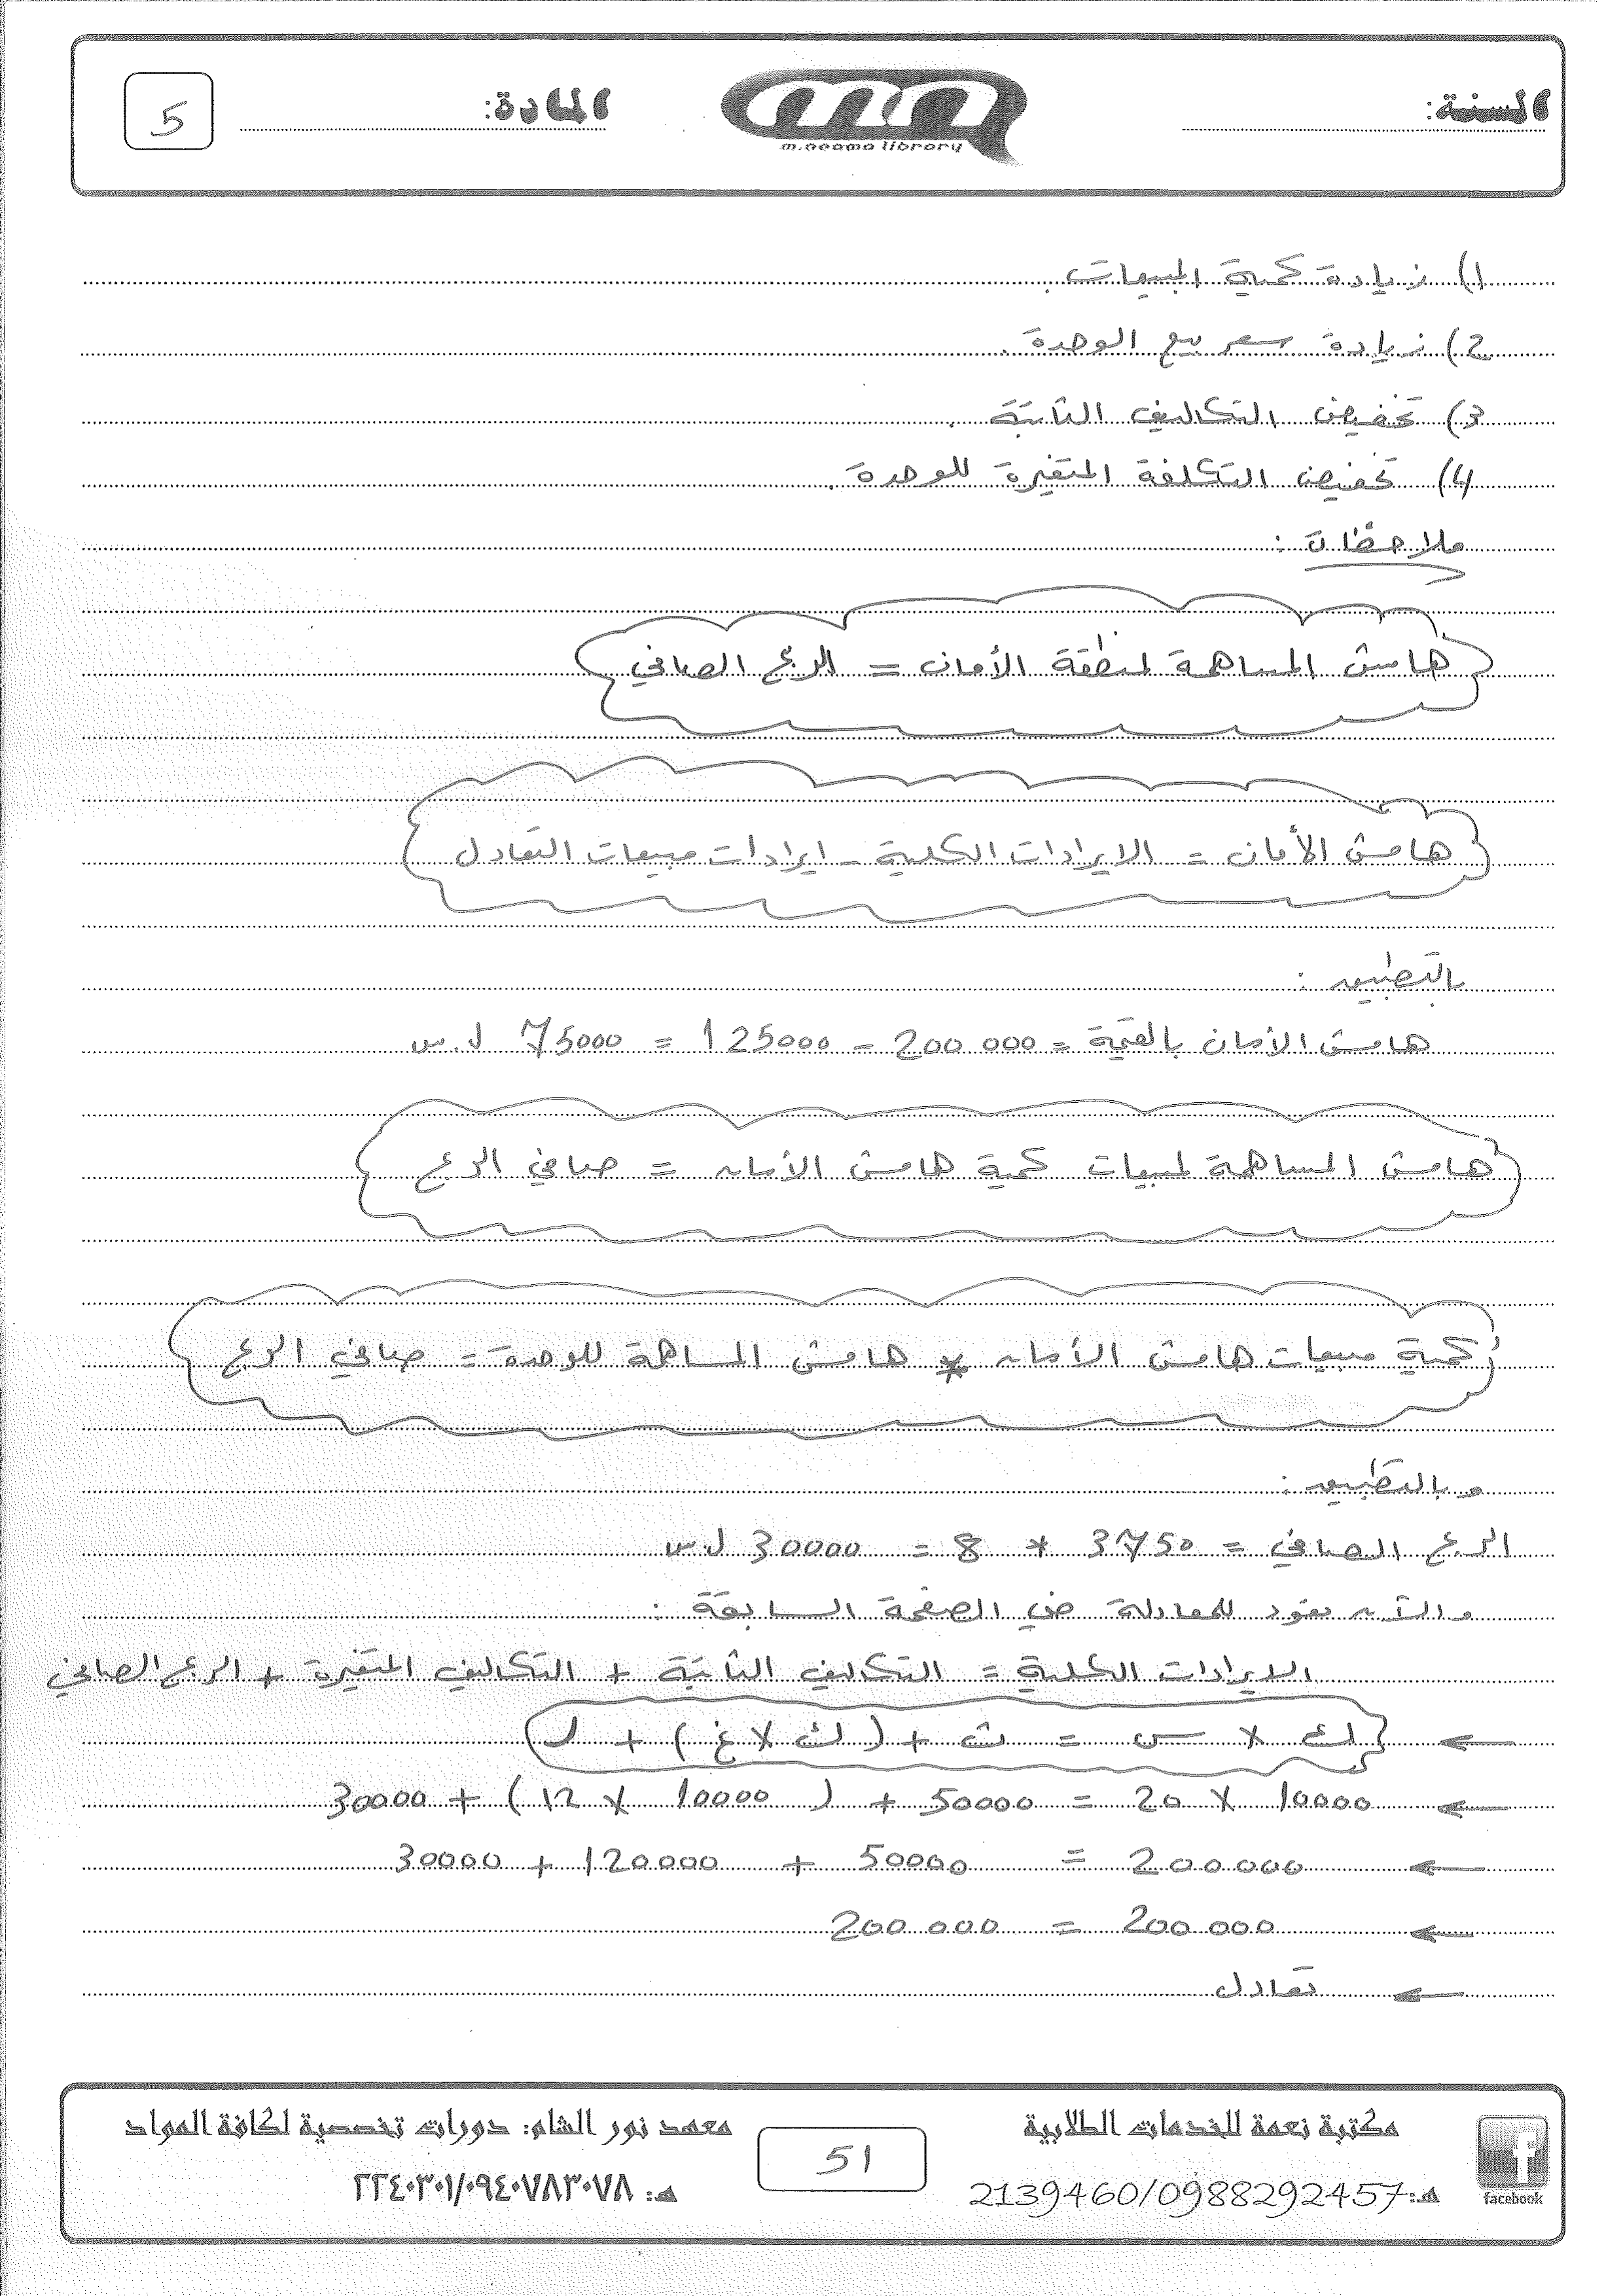 السنة:
m.neama library
المادة:
5
1) زيادة كمية المبيعات.
2) زيادة سعر بيع الوحدة.
3) تخفيض التكاليف الثابتة.
4) تخفيض التكلفة المتغيرة للوحدة.
ملاحظات:
هامش المساهمة لمنطقة الأمان = الربح الصافي
هامش الأمان = الايرادات الكلية - ايرادات مبيعات التعادل
بالتطبيق:
هامش الأمان بالقيمة = 200 000 - 125000 = 75000 ل.س
هامش المساهمة لمبيعات كمية هامش الأمان = صافي الربح
كمية مبيعات هامش الأمان * هامش المساهمة للوحدة = صافي الربح
وبالتطبيق:
الربح الصافي = 3750 * 8 = 30000 ل.س
والآن نعود للمعادلة في الصفحة السابقة:
الايرادات الكلية = التكاليف الثابتة + التكاليف المتغيرة + الربح الصافي
← ك × س = ث + (ك × غ) + ر
← 10000 × 20 = 50000 + (10000 × 12) + 30000
← 200000 = 50000 + 120000 + 30000
← 200 000 = 200 000
← تعادل
مكتبة نعمة للخدمات الطلابية
هـ: 2139460/0988292457
facebook
51
معهد نور الشام: دورات تخصصية لكافة المواد
هـ: ٢٢٤٠٣٠١/٠٩٤٠٧٨٣٠٧٨